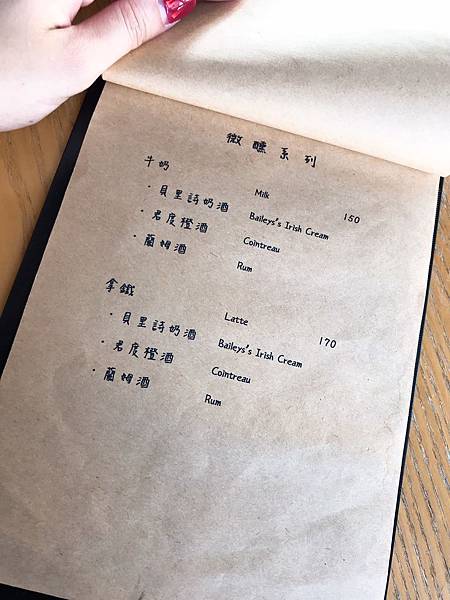 微醺系列
牛奶 Milk 150
·貝里詩奶酒 Baileys's Irish Cream
·君度橙酒 Cointreau
·蘭姆酒 Rum
拿鐵 Latte 170
·貝里詩奶酒 Baileys's Irish Cream
·君度橙酒 Cointreau
·蘭姆酒 Rum